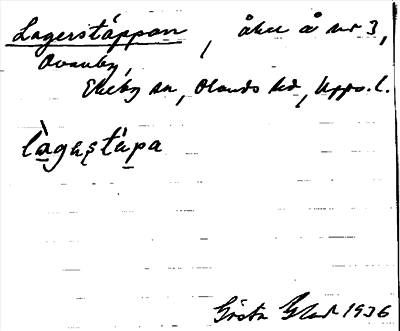 Lagerstäppan, åker å nr 3,
Ovanby,
Ekeby sn, Olands hd, Upps. l.
làgestäpa
Gösta Glad 1936